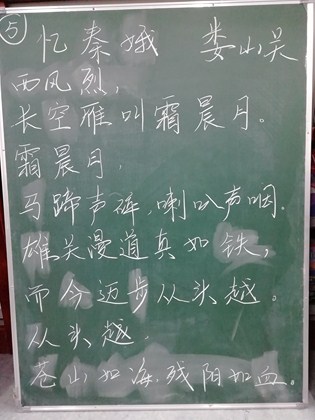 ⑤ 忆秦娥 娄山吴
西风烈,
长空雁叫霜晨月。
霜晨月,
马蹄声碎,喇叭声咽.
雄关漫道真如铁,
而今迈步从头越。
从头越,
苍山如海,残阳如血。